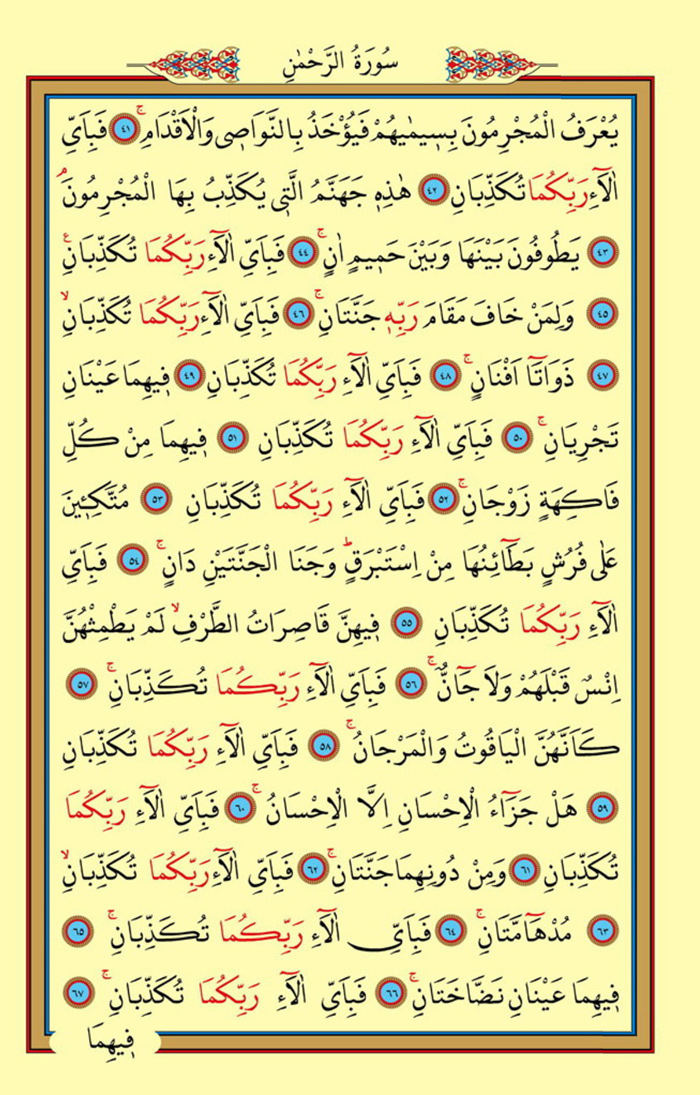 سُورَةُ الرَّحْمٰنِ
يُعْرَفُ الْمُجْرِمُونَ بِسٖيمٰيهُمْ فَيُؤْخَذُ بِالنَّوَاصٖى وَالْاَقْدَامِۚ ﴿٤١﴾ فَبِاَىِّ
اٰلَٓاءِ رَبِّكُمَا تُكَذِّبَانِ ﴿٤٢﴾ هٰذِهٖ جَهَنَّمُ الَّتٖى يُكَذِّبُ بِهَا الْمُجْرِمُونَۢ
﴿٤٣﴾ يَطُوفُونَ بَيْنَهَا وَبَيْنَ حَمٖيمٍ اٰنٍۚ ﴿٤٤﴾ فَبِاَىِّ اٰلَٓاءِ رَبِّكُمَا تُكَذِّبَانِࣖ
﴿٤٥﴾ وَلِمَنْ خَافَ مَقَامَ رَبِّهٖ جَنَّتَانِۚ ﴿٤٦﴾ فَبِاَىِّ اٰلَٓاءِ رَبِّكُمَا تُكَذِّبَانِۙ
﴿٤٧﴾ ذَوَاتَٓا اَفْنَانٍۚ ﴿٤٨﴾ فَبِاَىِّ اٰلَٓاءِ رَبِّكُمَا تُكَذِّبَانِ ﴿٤٩﴾ فٖيهِمَا عَيْنَانِ
تَجْرِيَانِۚ ﴿٥٠﴾ فَبِاَىِّ اٰلَٓاءِ رَبِّكُمَا تُكَذِّبَانِ ﴿٥١﴾ فٖيهِمَا مِنْ كُلِّ
فَاكِهَةٍ زَوْجَانِۚ ﴿٥٢﴾ فَبِاَىِّ اٰلَٓاءِ رَبِّكُمَا تُكَذِّبَانِ ﴿٥٣﴾ مُتَّكِـٖٔينَ
عَلٰى فُرُشٍ بَطَٓائِنُهَا مِنْ اِسْتَبْرَقٍؕ وَجَنَا الْجَنَّتَيْنِ دَانٍۚ ﴿٥٤﴾ فَبِاَىِّ
اٰلَٓاءِ رَبِّكُمَا تُكَذِّبَانِ ﴿٥٥﴾ فٖيهِنَّ قَاصِرَاتُ الطَّرْفِۙ لَمْ يَطْمِثْهُنَّ
اِنْسٌ قَبْلَهُمْ وَلَا جَٓانٌّۚ ﴿٥٦﴾ فَبِاَىِّ اٰلَٓاءِ رَبِّكُمَا تُكَذِّبَانِۚ ﴿٥٧﴾
كَاَنَّهُنَّ الْيَاقُوتُ وَالْمَرْجَانُۚ ﴿٥٨﴾ فَبِاَىِّ اٰلَٓاءِ رَبِّكُمَا تُكَذِّبَانِ
﴿٥٩﴾ هَلْ جَزَٓاءُ الْاِحْسَانِ اِلَّا الْاِحْسَانُۚ ﴿٦٠﴾ فَبِاَىِّ اٰلَٓاءِ رَبِّكُمَا
تُكَذِّبَانِ ﴿٦١﴾ وَمِنْ دُونِهِمَا جَنَّتَانِۚ ﴿٦٢﴾ فَبِاَىِّ اٰلَٓاءِ رَبِّكُمَا تُكَذِّبَانِۙ
﴿٦٣﴾ مُدْهَٓامَّتَانِۚ ﴿٦٤﴾ فَبِاَىِّ اٰلَٓاءِ رَبِّكُمَا تُكَذِّبَانِۚ ﴿٦٥﴾
فٖيهِمَا عَيْنَانِ نَضَّاخَتَانِۚ ﴿٦٦﴾ فَبِاَىِّ اٰلَٓاءِ رَبِّكُمَا تُكَذِّبَانِۚ ﴿٦٧﴾
فٖيهِمَا